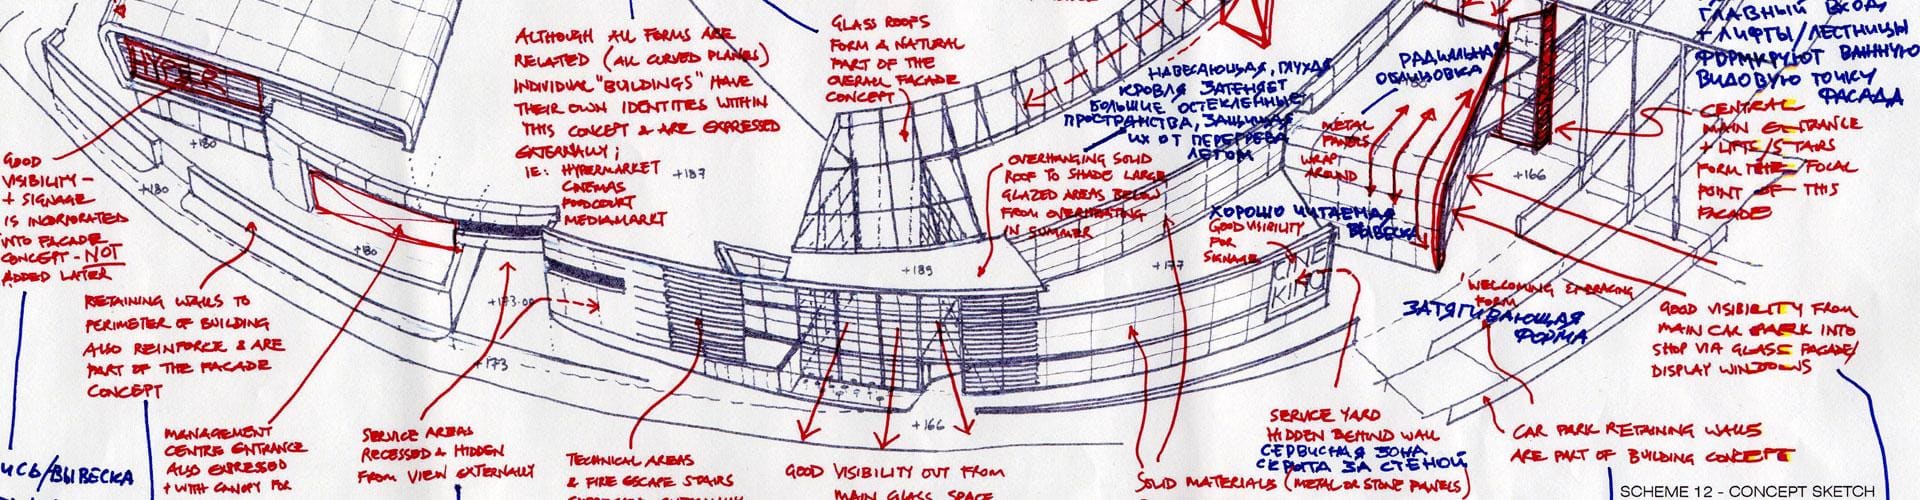 HYPER
GOOD
VISIBILITY -
+ SIGNAGE
IS INCORPORATED
INTO FACADE
CONCEPT - NOT
ADDED LATER
RETAINING WALLS TO
PERIMETER OF BUILDING
ALSO REINFORCE & ARE
PART OF THE FACADE
CONCEPT
MANAGEMENT
CENTRE ENTRANCE
ALSO EXPRESSED
+ WITH CANOPY FOR
SERVICE AREAS
RECESSED & HIDDEN
FROM VIEW EXTERNALLY
ALTHOUGH ALL FORMS ARE
RELATED (ALL CURVED PLANES)
INDIVIDUAL "BUILDINGS" HAVE
THEIR OWN IDENTITIES WITHIN
THIS CONCEPT & ARE EXPRESSED
EXTERNALLY;
IE: HYPERMARKET
CINEMAS
FOODCOURT
MEDIAMARKT
GLASS ROOFS
FORM A NATURAL
PART OF THE
OVERALL FACADE
CONCEPT
НАВЕСАЮЩАЯ, ГЛУХАЯ
КРОВЛЯ ЗАТЕНЯЕТ
БОЛЬШИЕ ОСТЕКЛЕННЫЕ
ПРОСТРАНСТВА, ЗАЩИЩАЯ
ИХ ОТ ПЕРЕГРЕВА
ЛЕТОМ
OVERHANGING SOLID
ROOF TO SHADE LARGE
GLAZED AREAS BELOW
FROM OVERHEATING
IN SUMMER
РАДИАЛЬНАЯ
ОБЛИЦОВКА
METAL
PANELS
WRAP
AROUND
ХОРОШО ЧИТАЕМАЯ
ВЫВЕСКА
GOOD VISIBILITY
FOR
SIGNAGE
CINE
KINO
ГЛАВНЫЙ ВХОД
+ ЛИФТЫ/ЛЕСТНИЦЫ
ФОРМИРУЮТ ВАЖНУЮ
ВИДОВУЮ ТОЧКУ
ФАСАДА
CENTRAL
MAIN ENTRANCE
+ LIFTS/STAIRS
FORM THE FOCAL
POINT OF THIS
FACADE
'WELCOMING EMBRACING
FORM
ЗАТЯГИВАЮЩАЯ
ФОРМА
GOOD VISIBILITY FROM
MAIN CAR PARK INTO
SHOP VIA GLASS FACADE/
DISPLAY WINDOWS
CAR PARK RETAINING WALLS
ARE PART OF BUILDING CONCEPT
SERVICE YARD
HIDDEN BEHIND WALL
СЕРВИСНАЯ ЗОНА
СКРЫТА ЗА СТЕНОЙ
SOLID MATERIALS (METAL OR STONE PANELS)
GOOD VISIBILITY OUT FROM
MAIN GLASS SPACE
TECHNICAL AREAS
& FIRE ESCAPE STAIRS
ИСЬ/ВЫВЕСКА
+180
+180
+180
+187
+173.00
+173
+189
+177
+166
+166
SCHEME 12 - CONCEPT SKETCH